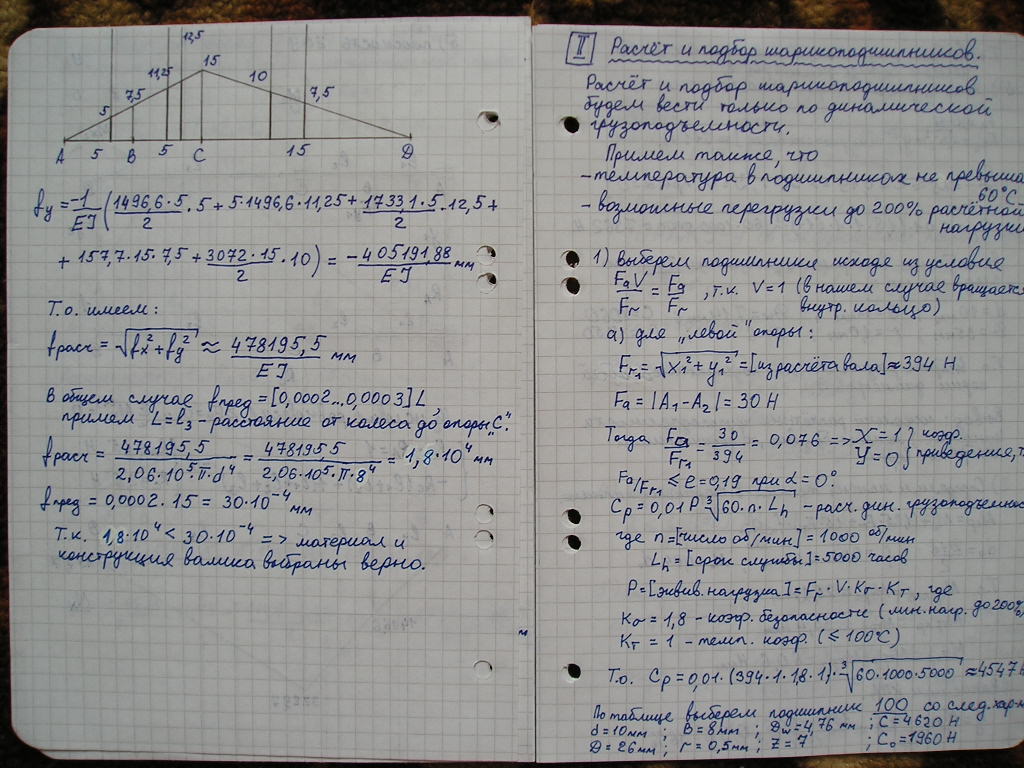 12,5
15
11,25
10
7,5
7,5
5
A 5 B 5 C 15 D
fy = -1/EJ (1496,6·5/2 · 5 + 5·1496,6·11,25 + 1733 1·5/2 · 12,5 +
+ 157,7·15·7,5 + 3072·15/2 · 10) = - 40519188/EJ мм
Т.о. имеем:
fрасч = √(fx² + fy²) ≈ 478195,5/EJ мм
В общем случае fпред = [0,0002...0,0003] L,
примем L = l₃ - расстояние от колеса до опоры „C".
fрасч = 478195,5/2,06·10⁵·П·d⁴ = 478195,5/2,06·10⁵·П·8⁴ = 1,8·10⁴ мм
fпред = 0,0002 · 15 = 30·10⁻⁴ мм
Т.к. 1,8·10⁴ < 30·10⁻⁴ => материал и
конструкция валика выбраны верно.
II Расчёт и подбор шарикоподшипников.
Расчёт и подбор шарикоподшипников
будем вести только по динамической
грузоподъемности.
Примем также, что
- температура в подшипниках не превыша
60°C
- возможные перегрузки до 200% расчётной
нагрузки
1) Выберем подшипники исходя из условия
FaV/Fr = Fa/Fr, т.к. V=1 (в нашем случае вращается
внутр. кольцо)
а) для „левой" опоры:
Fr₁ = √(X₁² + Y₁²) = [из расчёта вала] ≈ 394 Н
Fa = |A₁ - A₂| = 30 Н
Тогда Fa/Fr₁ = 30/394 = 0,076 => X = 1 } коэф.
Y = 0 } приведения, т.
Fa/Fr₁ ≤ e = 0,19 при α = 0°.
Cр = 0,01 P ∛(60·n·Lh) - расч. дин. грузоподъемно
где n = [число об/мин.] = 1000 об/мин
Lh = [срок службы] = 5000 часов
P = [эквив. нагрузка] = Fr · V · Kσ · Kт, где
Kσ = 1,8 - коэф. безопасности (мин. нагр. до 200%)
Kт = 1 - темп. коэф. (≤ 100°C)
Т.о. Cр = 0,01 · (394·1·1,8·1) · ∛(60·1000·5000) ≈ 4547 Н
По таблице выберем подшипник 100 со след. хар-м
d = 10 мм ; B = 8 мм ; Dw = 4,76 мм ; C = 4620 Н
D = 26 мм ; r = 0,5 мм ; Z = 7 ; C₀ = 1960 Н